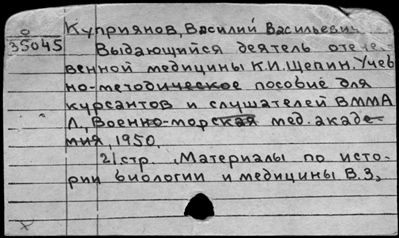 Куприянов, Василий Васильевич
О
35045
Выдающийся деятель отече-
венной медицины К.И. Щепин. Учеб
но-методическое пособие для
курсантов и слушателей ВММА
Л., Военно-морская мед. акаде-
мия, 1950.
21 стр. Материалы по исто-
рии биологии и медицины В.3.